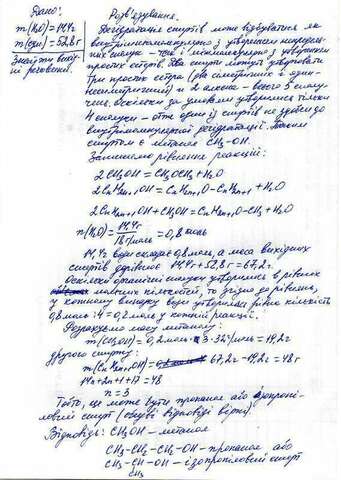 Дано:
m(H₂O)=14,4г
m(суміші)=52,8г
Знайти вихідні речовини.
Розв'язування.
Дегідратація спиртів може відбуватися як
внутрішньомолекулярно з утворенням ненасичених
сполук - так і міжмолекулярно з утворенням
простих етерів. Два спирти можуть утворювати
три простих етера (два симетричних і один
несиметричний) и 2 алкена - всього 5 сполучень,
оскільки за умовою утворились тільки
4 сполуки - отже один із спиртів не здатен до
внутрімолекулярної дегідратації. Таким
спиртом є метанол CH₃-OH.
Запишемо рівняння реакцій:
2CH₃OH = CH₃OCH₃ + H₂O
2CnH2n+1OH = CnH2n+1O-CnH2n+1 + H₂O
2CnH2n+1OH + CH₃OH = CnH2n+1O-CH₃ + H₂O
n(H₂O) = 14,4г / 18г/моль = 0,8 моль
14,4г води складає 0,8 моль, а маса вихідних
спиртів дорівнює 14,4г + 52,8г = 67,2г.
Оскільки органічні сполуки утворились в рівних
мольних кількостях, то згідно до рівнянь,
у кожному випадку води утворилась рівна кількість
0,8 моль : 4 = 0,2 моль у кожній реакції.
Розрахуємо масу метанолу:
m(CH₃OH) = 0,2 моль · 3 · 32г/моль = 19,2г
другого спирту:
m(CnH2n+1OH) = 67,2г - 19,2г = 48г
14n + 2n + 1 + 17 = 48
n = 3
Тобто, це може бути пропанол або ізопропіловий
спирт (обидві відповіді вірні).
Відповідь: CH₃OH - метанол
CH₃-CH₂-CH₂-OH - пропанол або
CH₃-CH-OH - ізопропіловий спирт
CH₃